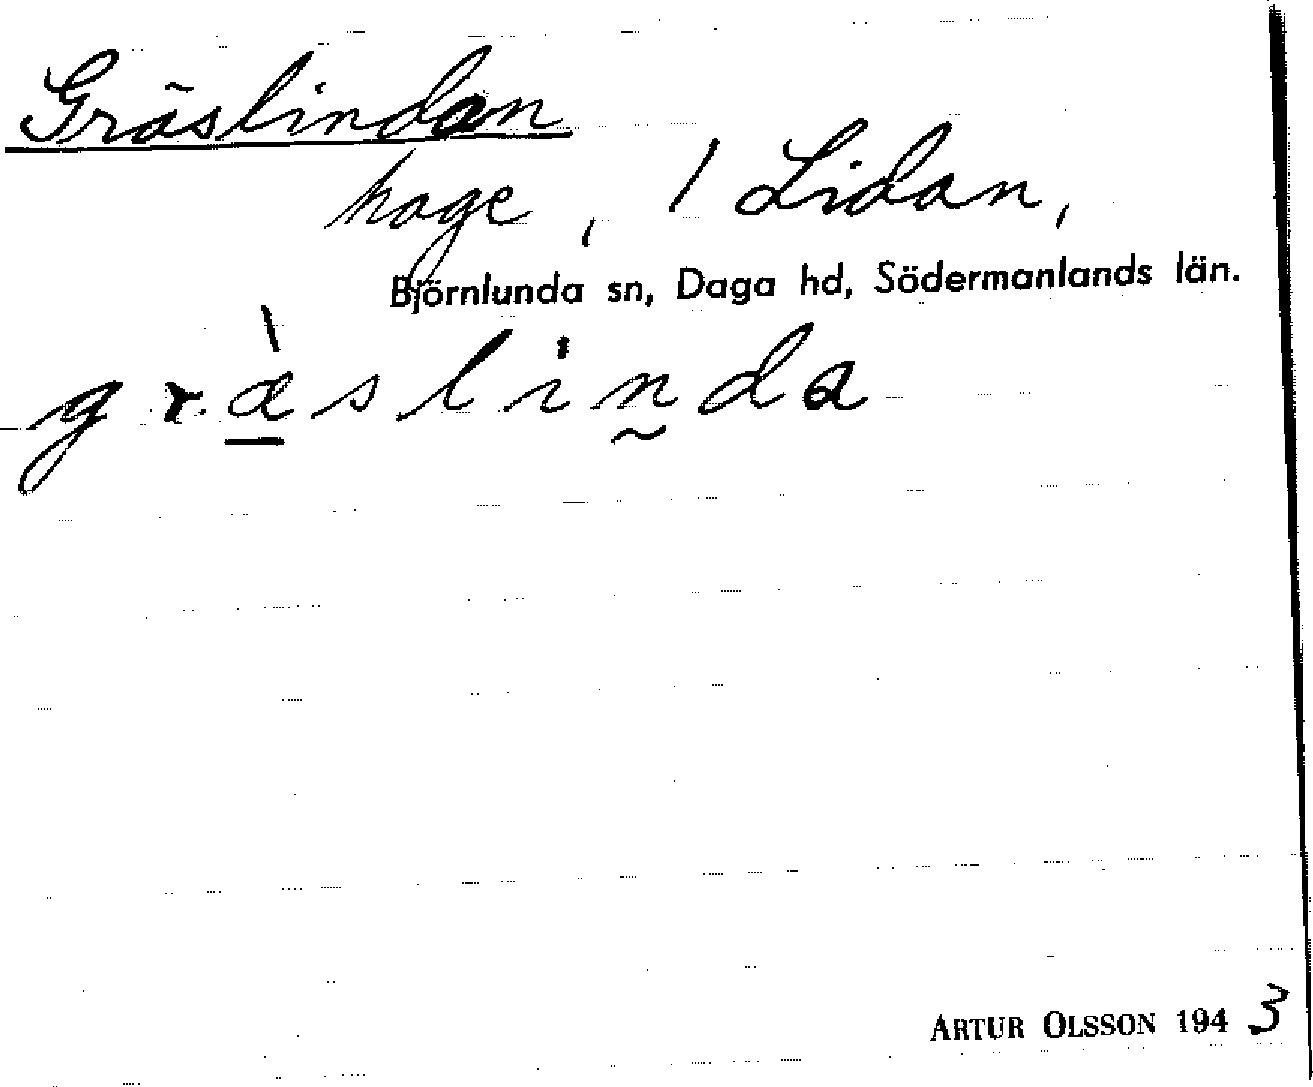 Gräslindan
hage, 1 Lidan,
Björnlunda sn, Daga hd, Södermanlands län.
græ̀slinda
ARTUR OLSSON 1943